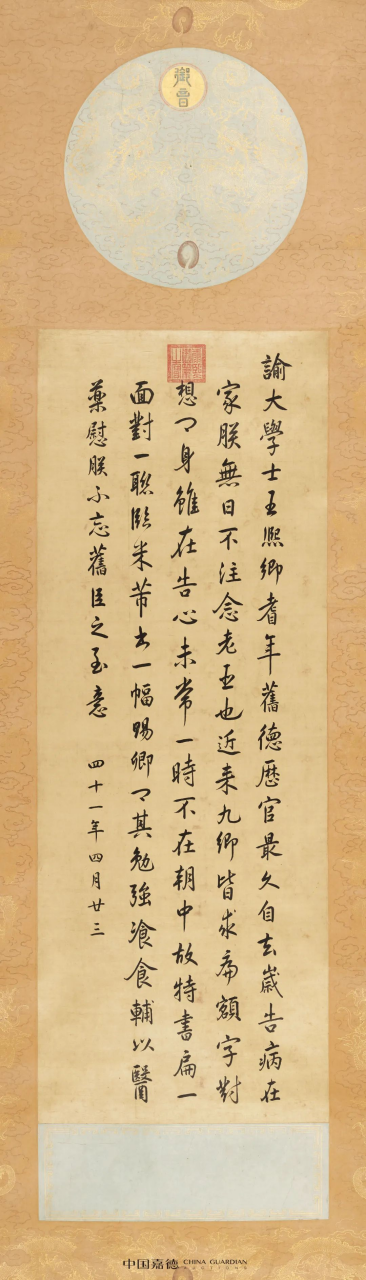 御書
諭大學士王熙卿耆年舊德歷官最久自去歲告病在
家朕無日不注念老王也近来九卿皆求扁額字對
想卿身雖在告心未常一時不在朝中故特書扁一
面對一聯臨米芾書一幅賜卿卿其勉強飡食輔以醫
藥慰朕不忘舊臣之至意
四十一年四月廿三
中国嘉德 CHINA GUARDIAN
AUCTIONS